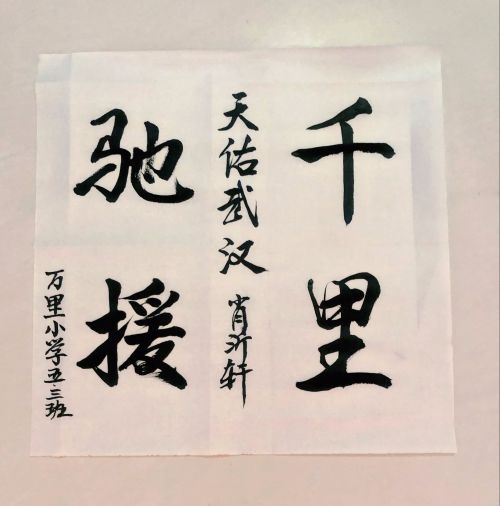 千里
驰援
天佑武汉 肖沂轩
万里小学五.三班